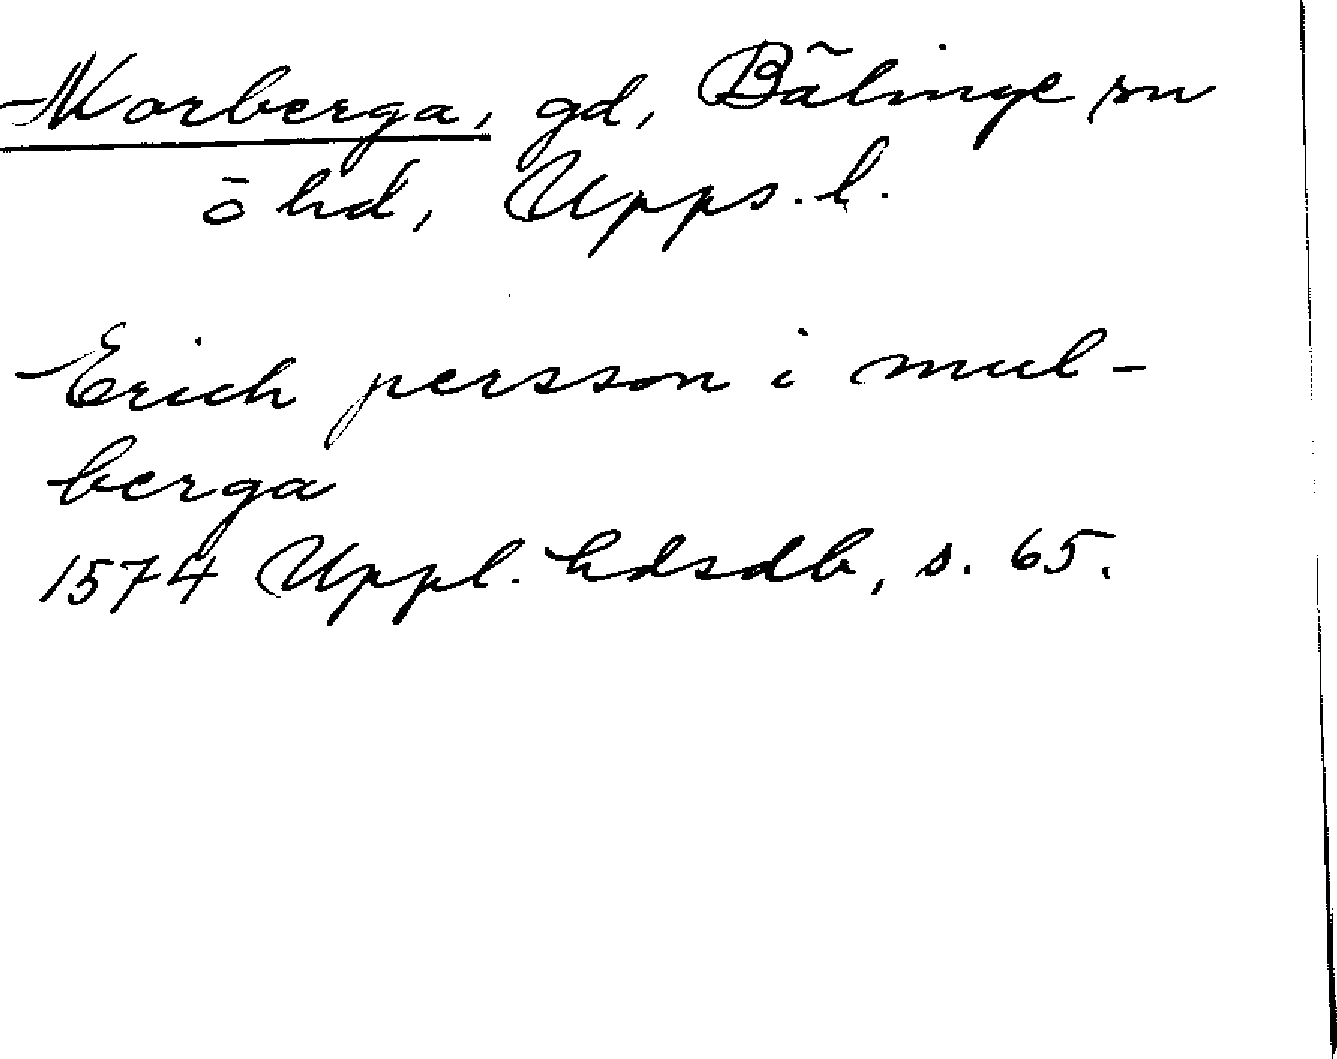 Morberga, gd, Bälinge sn
o hd, Upps. l.
Erich persson i mul-
berga
1574 Uppl. hdsdb, s. 65.